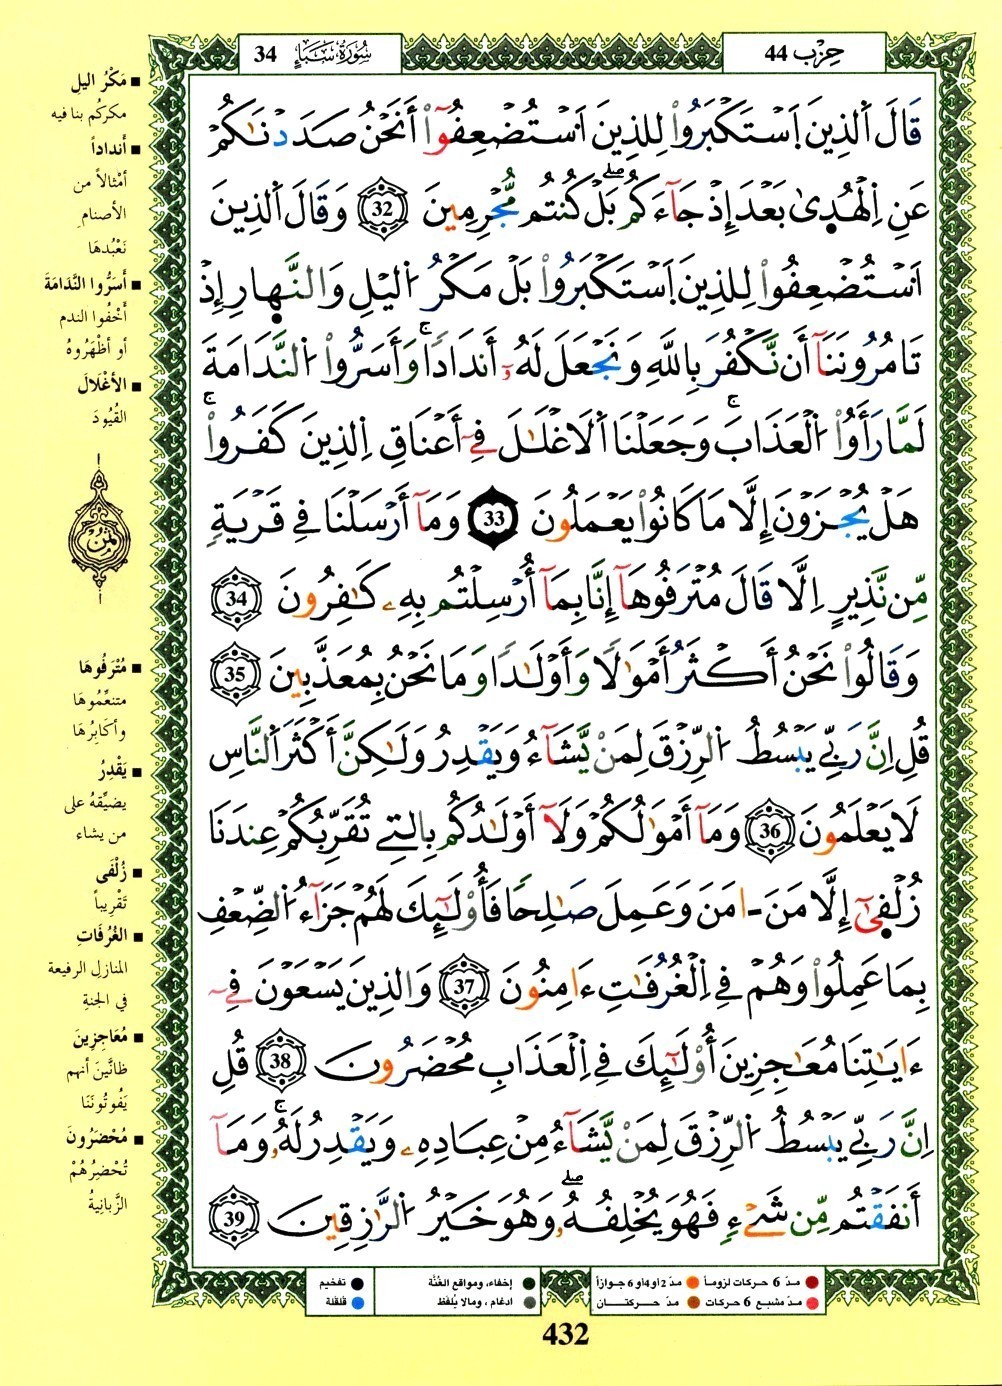 حِزْب 44
سُورَةُ سَبَإٍ 34
قَالَ اَ۬لذِينَ اَ۪سْتَكْبَرُواْ لِلذِينَ اَ۟سْتُضْعِفُوٓاْ أَنَحْنُ صَدَدْنَٰكُمْ
عَنِ اِ۬لْهُد۪ىٰ بَعْدَ إِذْ جَآءَكُمۖ بَلْ كُنتُم مُّجْرِمِينَ 32 وَقَالَ اَ۬لذِينَ
اَ۟سْتُضْعِفُواْ لِلذِينَ اَ۪سْتَكْبَرُواْ بَلْ مَكْرُ اُ۬ليْلِ وَالنَّه۪ارِ إِذْ
تَامُرُونَنَآ أَن نَّكْفُرَ بِاللَّهِ وَنَجْعَلَ لَهُۥٓ أَندَاداٗۚ وَأَسَرُّواْ اُ۬لنَّدَامَةَ
لَمَّا رَأَوُاْ اُ۬لْعَذَابَۚ وَجَعَلْنَا اَ۬لَاغْلَٰلَ فِےٓ أَعْنَاقِ اِ۬لذِينَ كَفَرُواْۚ
هَلْ يُجْزَوْنَ إِلَّا مَا كَانُواْ يَعْمَلُونَ 33 وَمَآ أَرْسَلْنَا فِے قَرْيَةٖ
مِّن نَّذِيرٍ اِلَّا قَالَ مُتْرَفُوهَآ إِنَّا بِمَآ أُرْسِلْتُم بِهِۦ كَٰفِرُونَ 34
وَقَالُواْ نَحْنُ أَكْثَرُ أَمْوَٰلاٗ وَأَوْلَٰداٗ وَمَا نَحْنُ بِمُعَذَّبِينَ 35
قُلِ اِنَّ رَبِّے يَبْسُطُ اُ۬لرِّزْقَ لِمَنْ يَّشَآءُ وَيَقْدِرُ وَلَٰكِنَّ أَكْثَرَ اَ۬لنَّاسِ
لَا يَعْلَمُونَ 36 وَمَآ أَمْوَٰلُكُمْ وَلَآ أَوْلَٰدُكُم بِالتِے تُقَرِّبُكُمْ عِندَنَا
زُلْف۪ىٰٓ إِلَّا مَنَ اٰمَنَ وَعَمِلَ صَٰلِحاٗ فَأُوْلَٰٓئِكَ لَهُمْ جَزَآءُ اُ۬لضِّعْفِ
بِمَا عَمِلُواْ وَهُمْ فِے اِ۬لْغُرُفَٰتِ ءَامِنُونَ 37 وَالذِينَ يَسْعَوْنَ فِےٓ
ءَايَٰتِنَا مُعَٰجِزِينَ أُوْلَٰٓئِكَ فِے اِ۬لْعَذَابِ مُحْضَرُونَ 38 قُلِ
اِنَّ رَبِّے يَبْسُطُ اُ۬لرِّزْقَ لِمَنْ يَّشَآءُ مِنْ عِبَادِهِۦ وَيَقْدِرُ لَهُۥۚ وَمَآ
أَنفَقْتُم مِّن شَےْءٖ فَهُوَ يُخْلِفُهُۥۖ وَهُوَ خَيْرُ اُ۬لرَّٰزِقِينَ 39
■ مَكْرُ اليلِ
مكركُم بنا فيه
■ أَنداداً
أمْثالاً من
الأصنام
نَعْبُدهَا
■ أَسَرُّوا النَّدَامَةَ
أَخْفُوا الندم
أو أظْهَرُوهُ
■ الأَغْلَالَ
القُيُودَ
ثُمُن
■ مُتْرَفُوهَا
متنعِّمُوهَا
وأكابِرُهَا
■ يَقْدِرُ
يضيِّقهُ على
من يشاء
■ زُلْفَى
تَقْريباً
■ الغُرُفَاتِ
المنازل الرفيعة
في الجنةِ
■ مُعَاجِزِينَ
ظانَّينَ أنهم
يَفُوتُونَنَا
■ مُحْضَرُونَ
تُحْضِرُهُمْ
الزَّبانِيةُ
مدّ 6 حركات لزوماً مدّ 2 أو 4 أو 6 جوازاً
مدّ مشبع 6 حركات مدّ حركتان
إخفاء، ومواقع الغُنَّة
ادغام، ومالا يُلفَظ
تفخيم
قلقلة
432